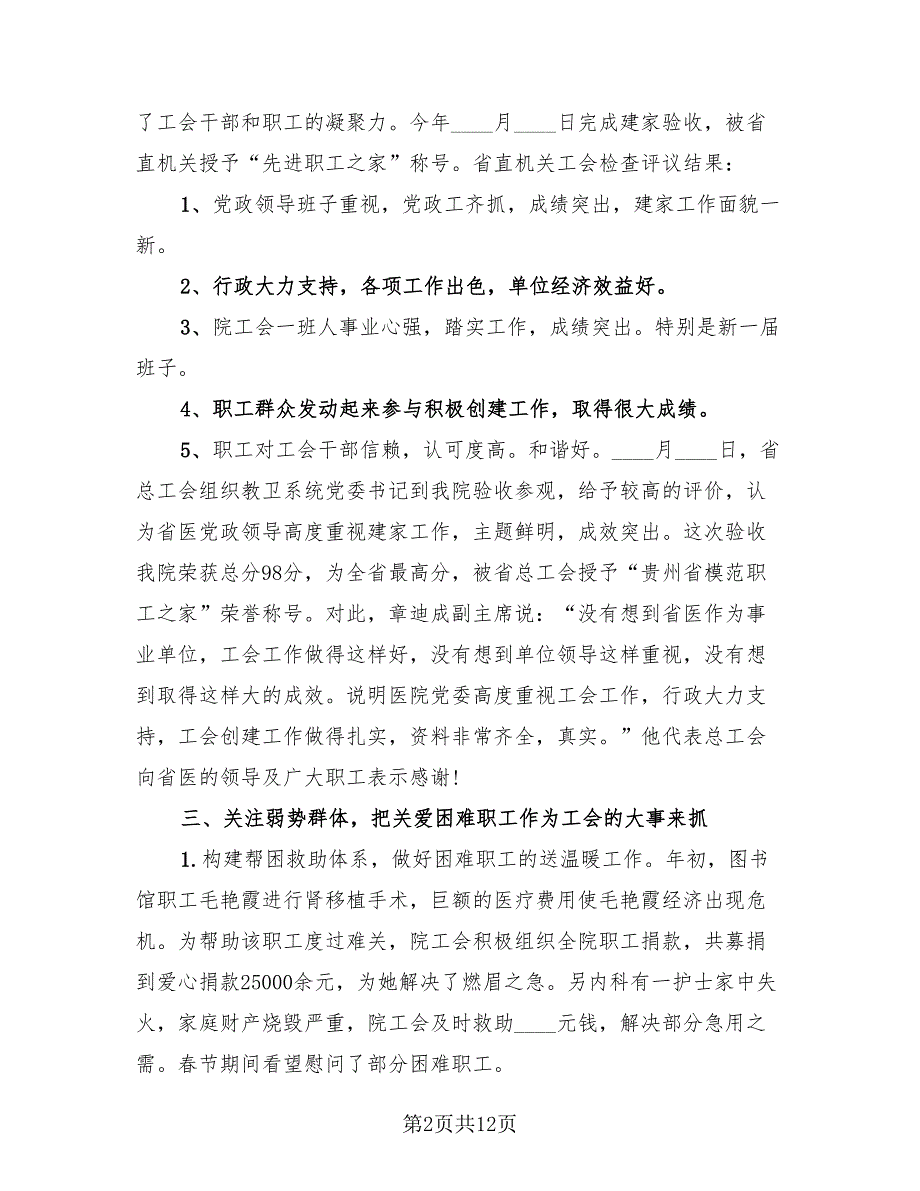 了工会干部和职工的凝聚力。今年____月____日完成建家验收，被省
直机关授予“先进职工之家”称号。省直机关工会检查评议结果：
1、党政领导班子重视，党政工齐抓，成绩突出，建家工作面貌一
新。
2、行政大力支持，各项工作出色，单位经济效益好。
3、院工会一班人事业心强，踏实工作，成绩突出。特别是新一届
班子。
4、职工群众发动起来参与积极创建工作，取得很大成绩。
5、职工对工会干部信赖，认可度高。和谐好。____月____日，省
总工会组织教卫系统党委书记到我院验收参观，给予较高的评价，认
为省医党政领导高度重视建家工作，主题鲜明，成效突出。这次验收
我院荣获总分98分，为全省最高分，被省总工会授予“贵州省模范职
工之家”荣誉称号。对此，章迪成副主席说：“没有想到省医作为事
业单位，工会工作做得这样好，没有想到单位领导这样重视，没有想
到取得这样大的成效。说明医院党委高度重视工会工作，行政大力支
持，工会创建工作做得扎实，资料非常齐全，真实。”他代表总工会
向省医的领导及广大职工表示感谢!
三、关注弱势群体，把关爱困难职工作为工会的大事来抓
1.构建帮困救助体系，做好困难职工的送温暖工作。年初，图书
馆职工毛艳霞进行肾移植手术，巨额的医疗费用使毛艳霞经济出现危
机。为帮助该职工度过难关，院工会积极组织全院职工捐款，共募捐
到爱心捐款25000余元，为她解决了燃眉之急。另内科有一护士家中失
火，家庭财产烧毁严重，院工会及时救助____元钱，解决部分急用之
需。春节期间看望慰问了部分困难职工。
第2页共12页